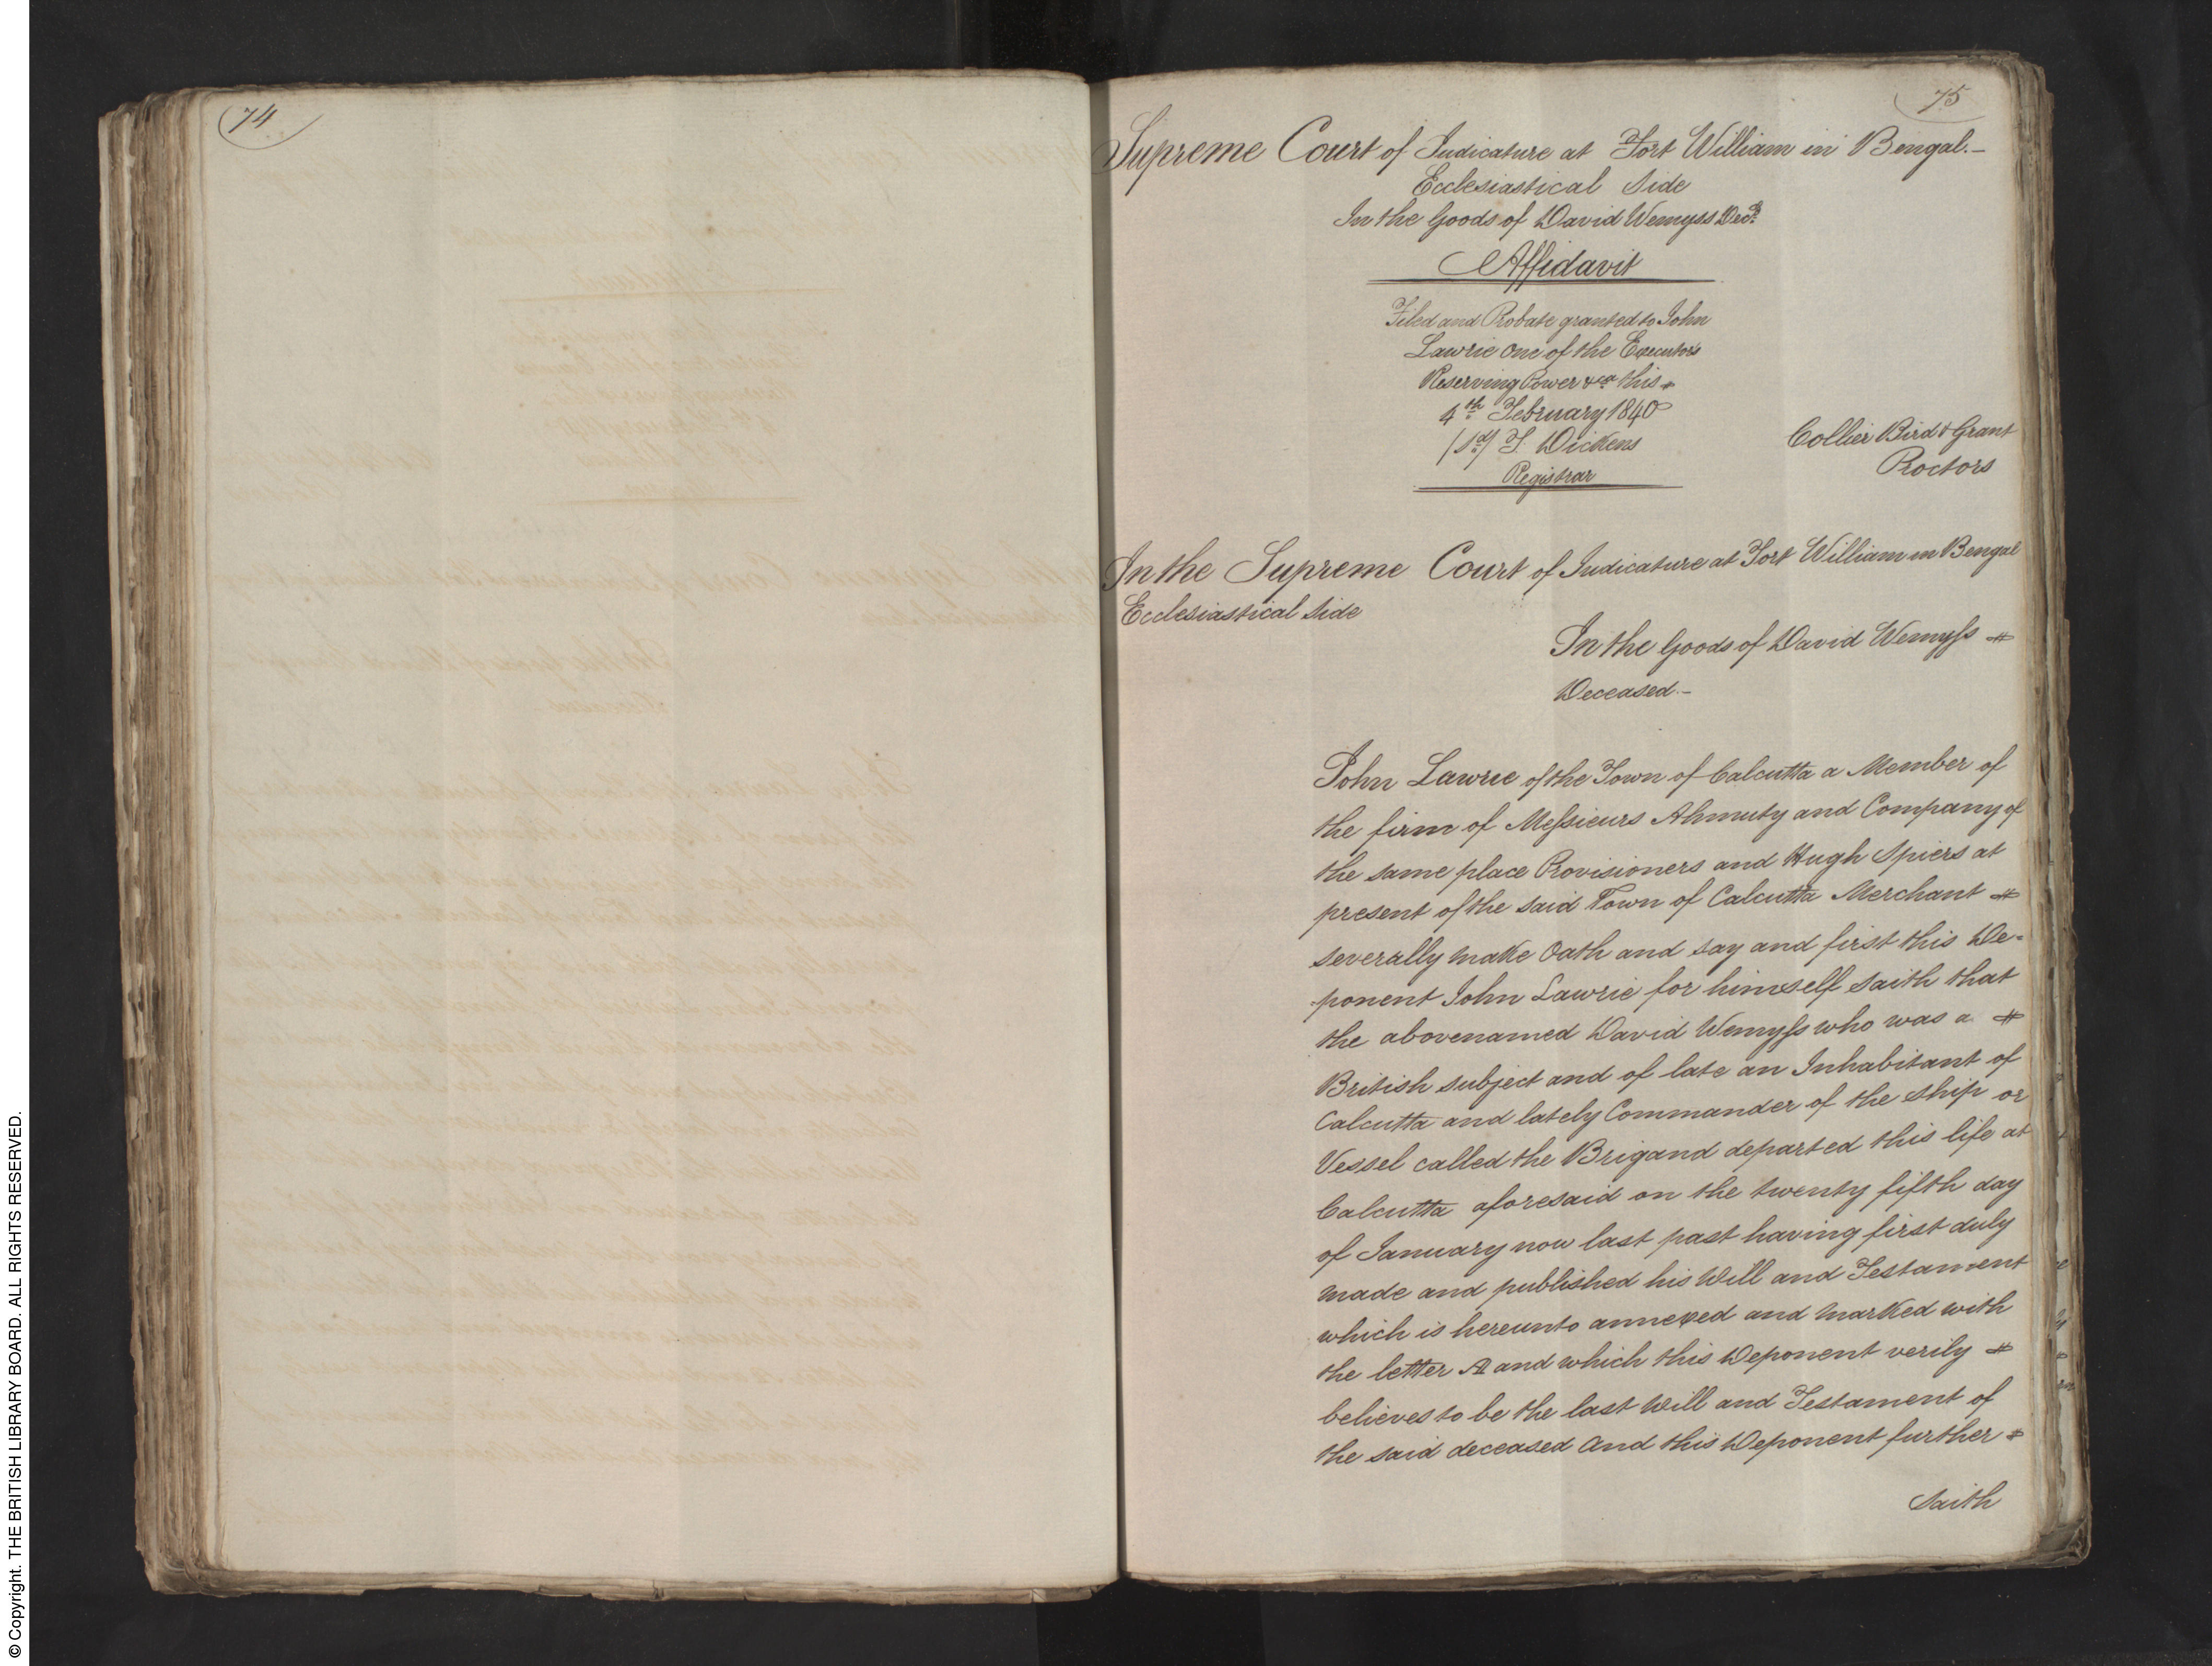 74
75
Supreme Court of Judicature at Fort William in Bengal.-
Ecclesiastical Side
In the Goods of David Wemyss Decd.
Affidavit
Filed and Probate granted to John
Lawrie one of the Executors
Reserving Power &ca this
4th February 1840
(sd) T. Dickens
Registrar
Collier Bird & Grant
Proctors
In the Supreme Court of Judicature at Fort William in Bengal
Ecclesiastical Side
In the Goods of David Wemyss
Deceased.-
John Lawrie of the Town of Calcutta a Member of
the firm of Messieurs Ahmuty and Company of
the same place Provisioners and Hugh Spiers at
present of the said Town of Calcutta Merchant
severally make Oath and say and first this De-
-ponent John Lawrie for himself saith that
the abovenamed David Wemyss who was a
British subject and of late an Inhabitant of
Calcutta and lately Commander of the Ship or
Vessel called the Brigand departed this life at
Calcutta aforesaid on the twenty fifth day
of January now last past having first duly
made and published his Will and Testament
which is hereunto annexed and marked with
the letter A and which this Deponent verily
believes to be the last Will and Testament of
the said deceased and this Deponent further
Saith
© Copyright. THE BRITISH LIBRARY BOARD. ALL RIGHTS RESERVED.